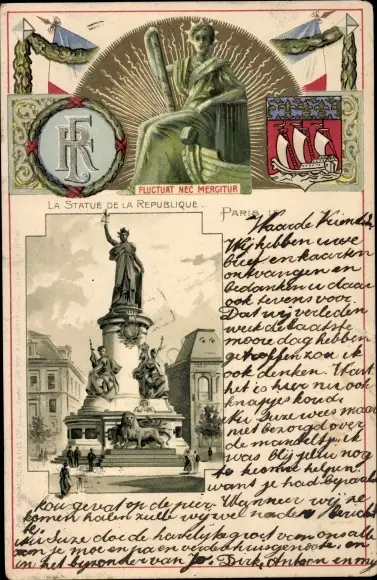 RF
FLUCTUAT NEC MERGITUR
LA STATUE DE LA REPUBLIQUE.
PARIS
Waarde Vriendin
Wij hebben uwe
brief en kaarten
ontvangen en
bedanken u daar
ook tevens voor.
Dat wij verleden
week de laatste
mooie dag hebben
getroffen zou ik
ook denken. Want
het is hier nu ook
knapjes koud.
Nu Suze wees maar
niet bezorgd over
de manteltje ik
was blij je nog
te kunnen helpen.
want je had bijna
kou gevat op de pier. Wanneer wij ze
komen halen zulle wij we nader
Nu Suze doe de hartelijke groet van ons alle
aan je moe en pa en verdere huisgenoten, en
in het bijzonder van Jo. Dirk, Antoon en mij